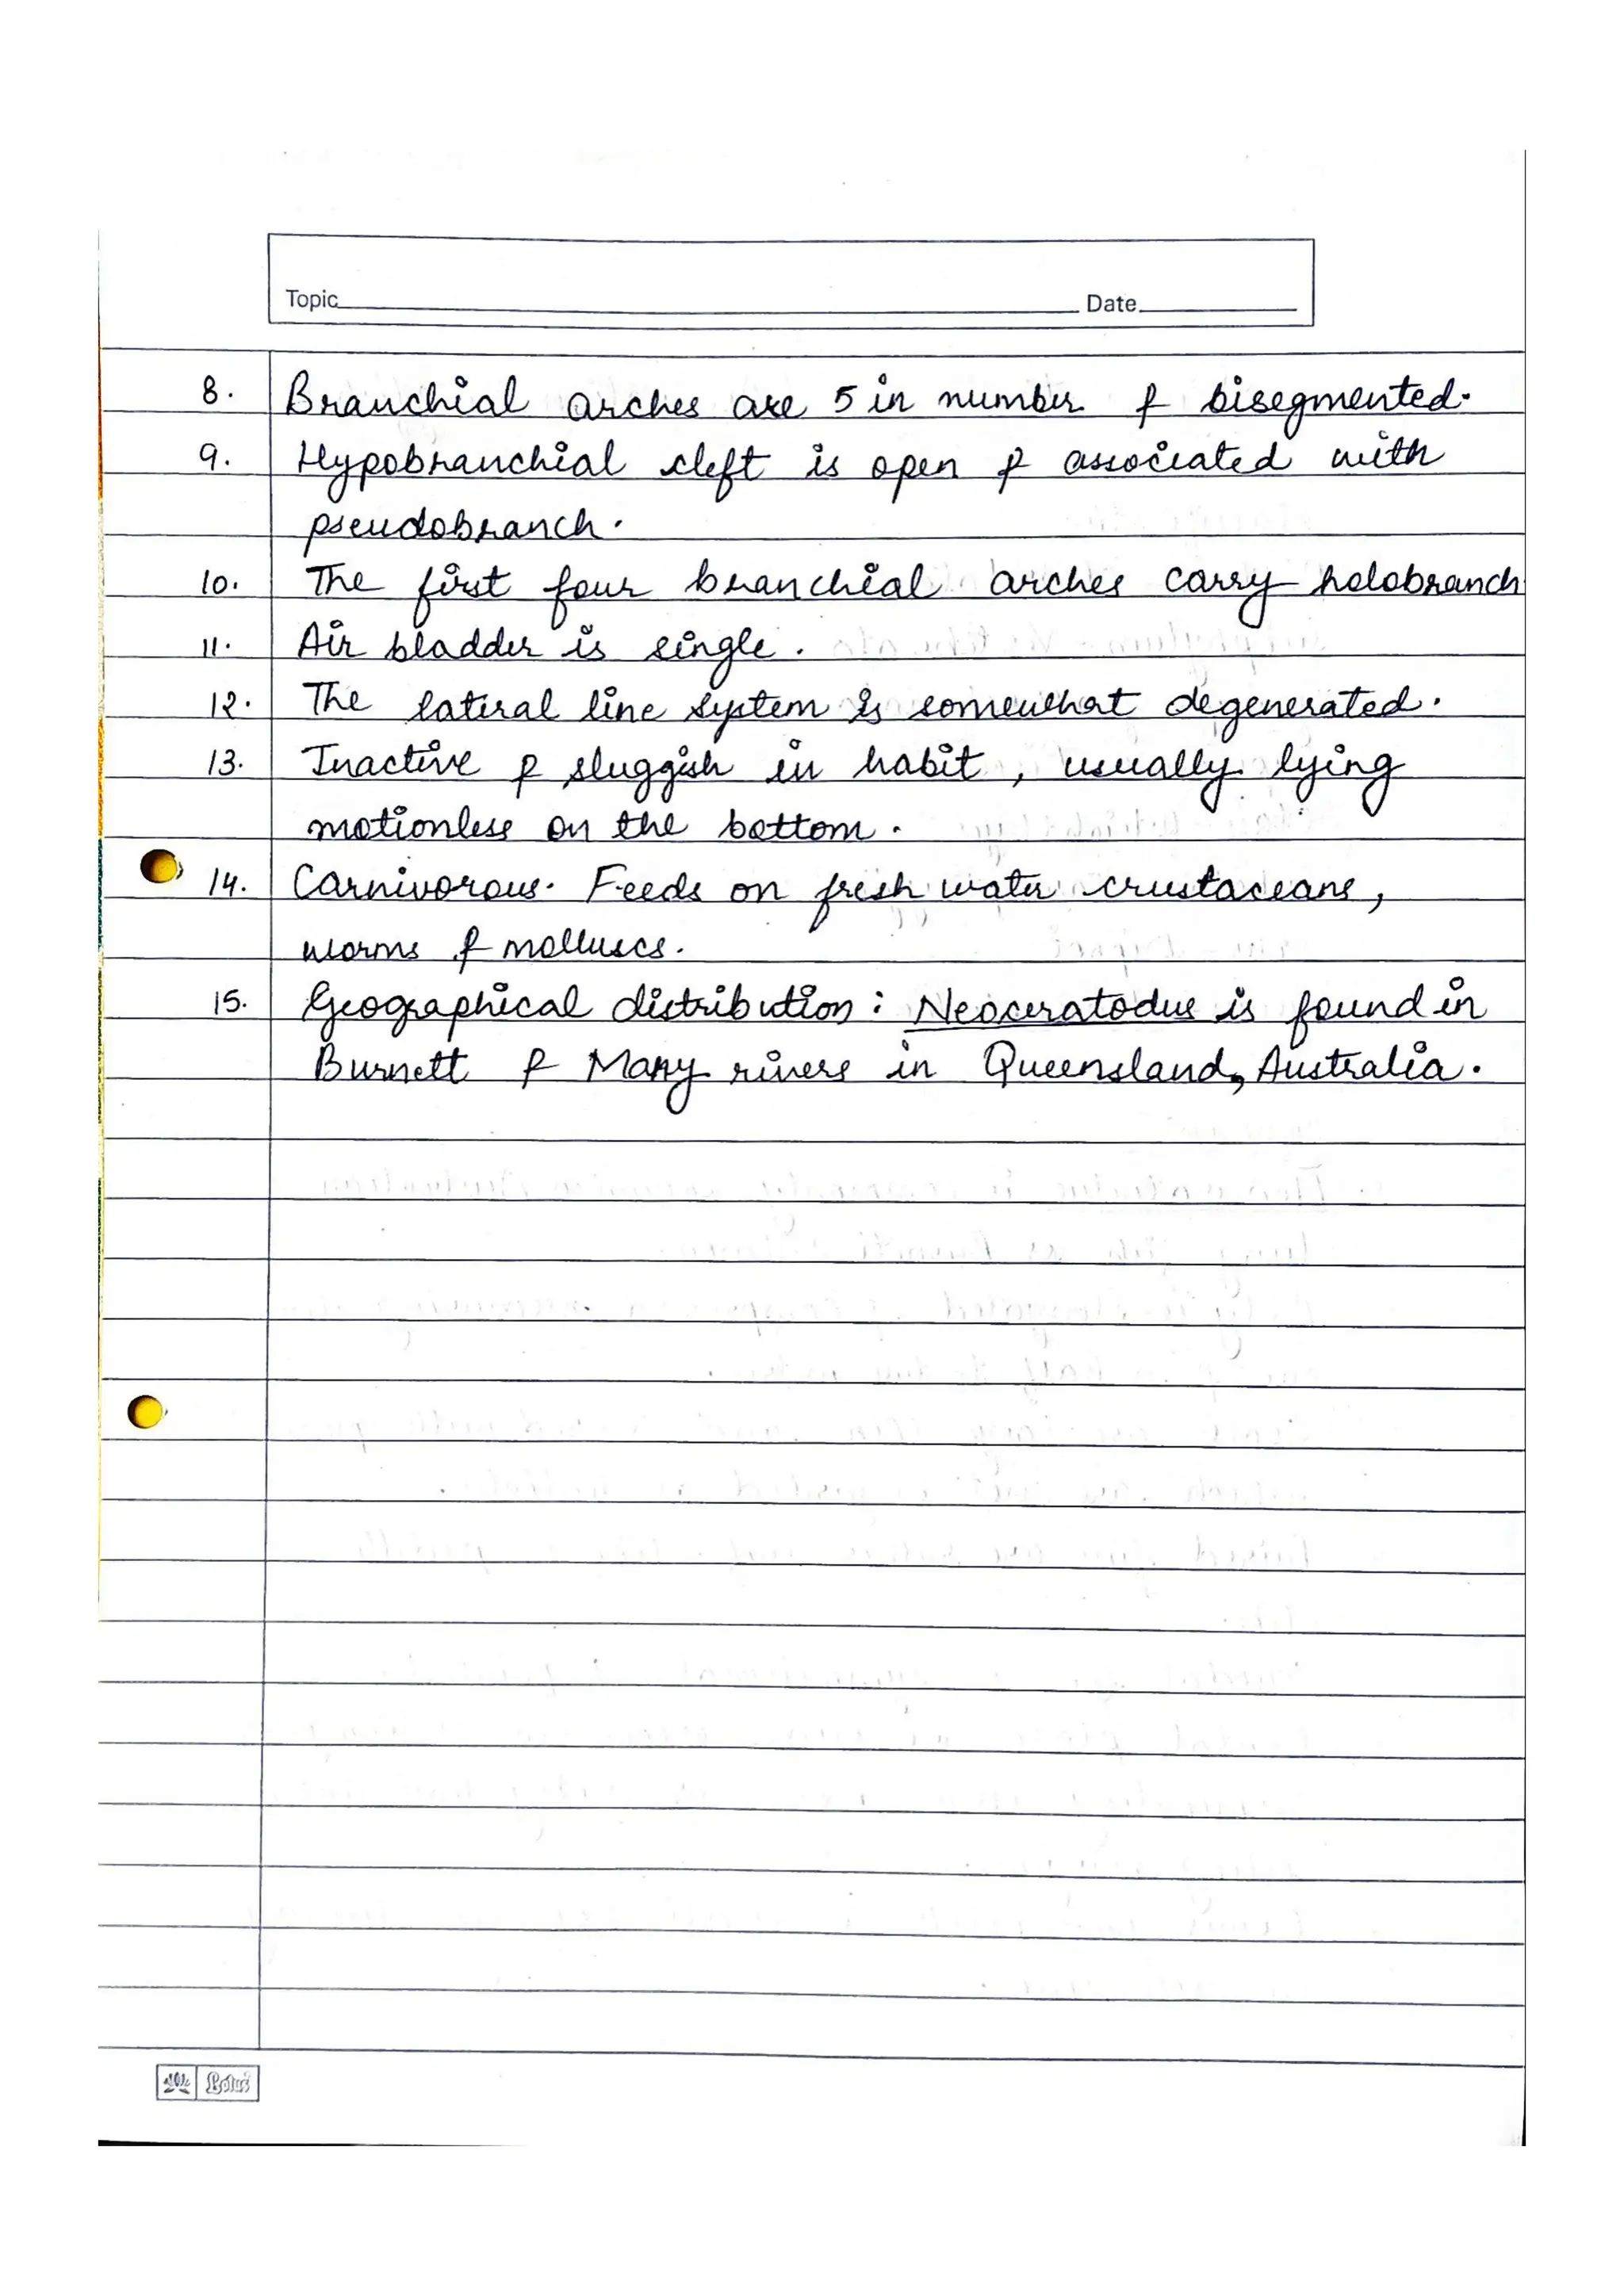 Topic Date
8. Branchial arches are 5 in number & bisegmented.
9. Hypobranchial cleft is open & associated with
pseudobranch.
10. The first four branchial arches carry holobranch
11. Air bladder is single.
12. The lateral line system is somewhat degenerated.
13. Inactive & sluggish in habit, usually lying
motionless on the bottom.
14. Carnivorous. Feeds on fresh water crustaceans,
worms & molluscs.
15. Geographical distribution: Neoceratodus is found in
Burnett & Mary rivers in Queensland, Australia.
Lotus